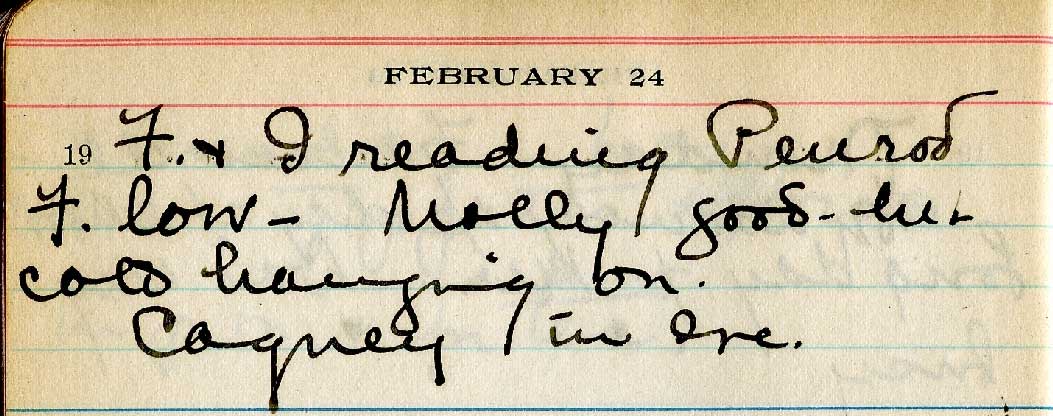 FEBRUARY 24
19 F. & I reading Penrod
F. low - Molly good - but
cold hanging on.
Cagney in eve.